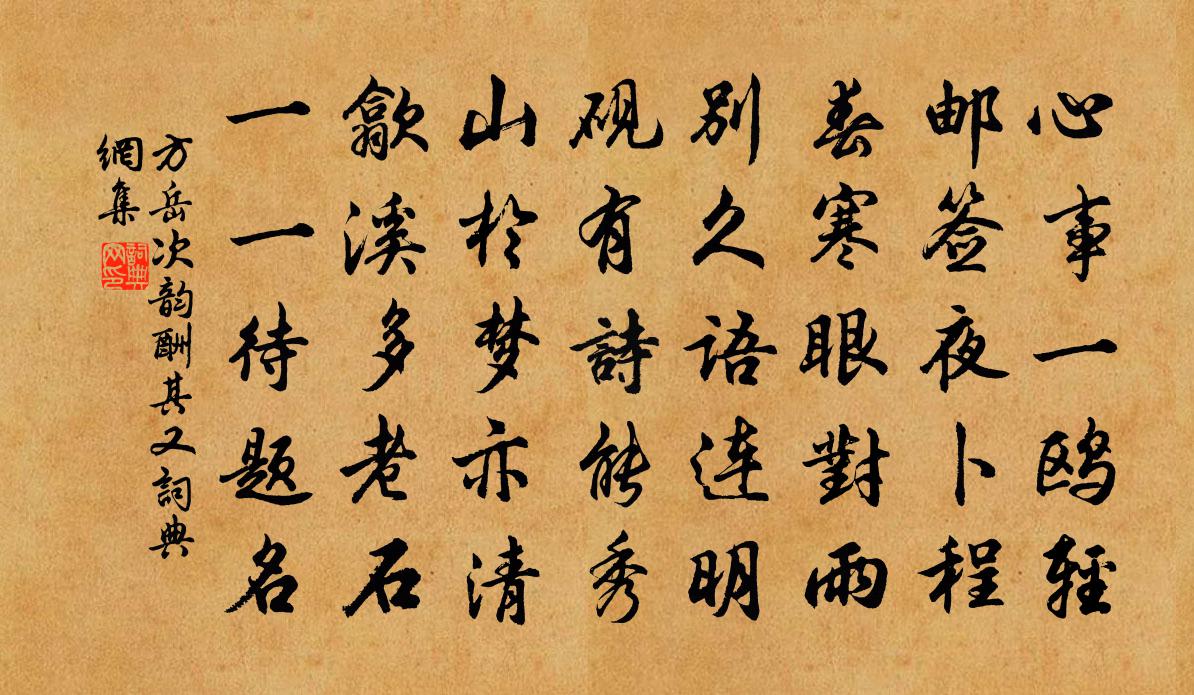 心事一鸥輕
邮签夜卜程
春寒眼對雨
别久語連明
硯有詩能秀
山於梦亦清
歙溪多老石
一一待题名
方岳次韵酬其又詞典
網集
詞典网印